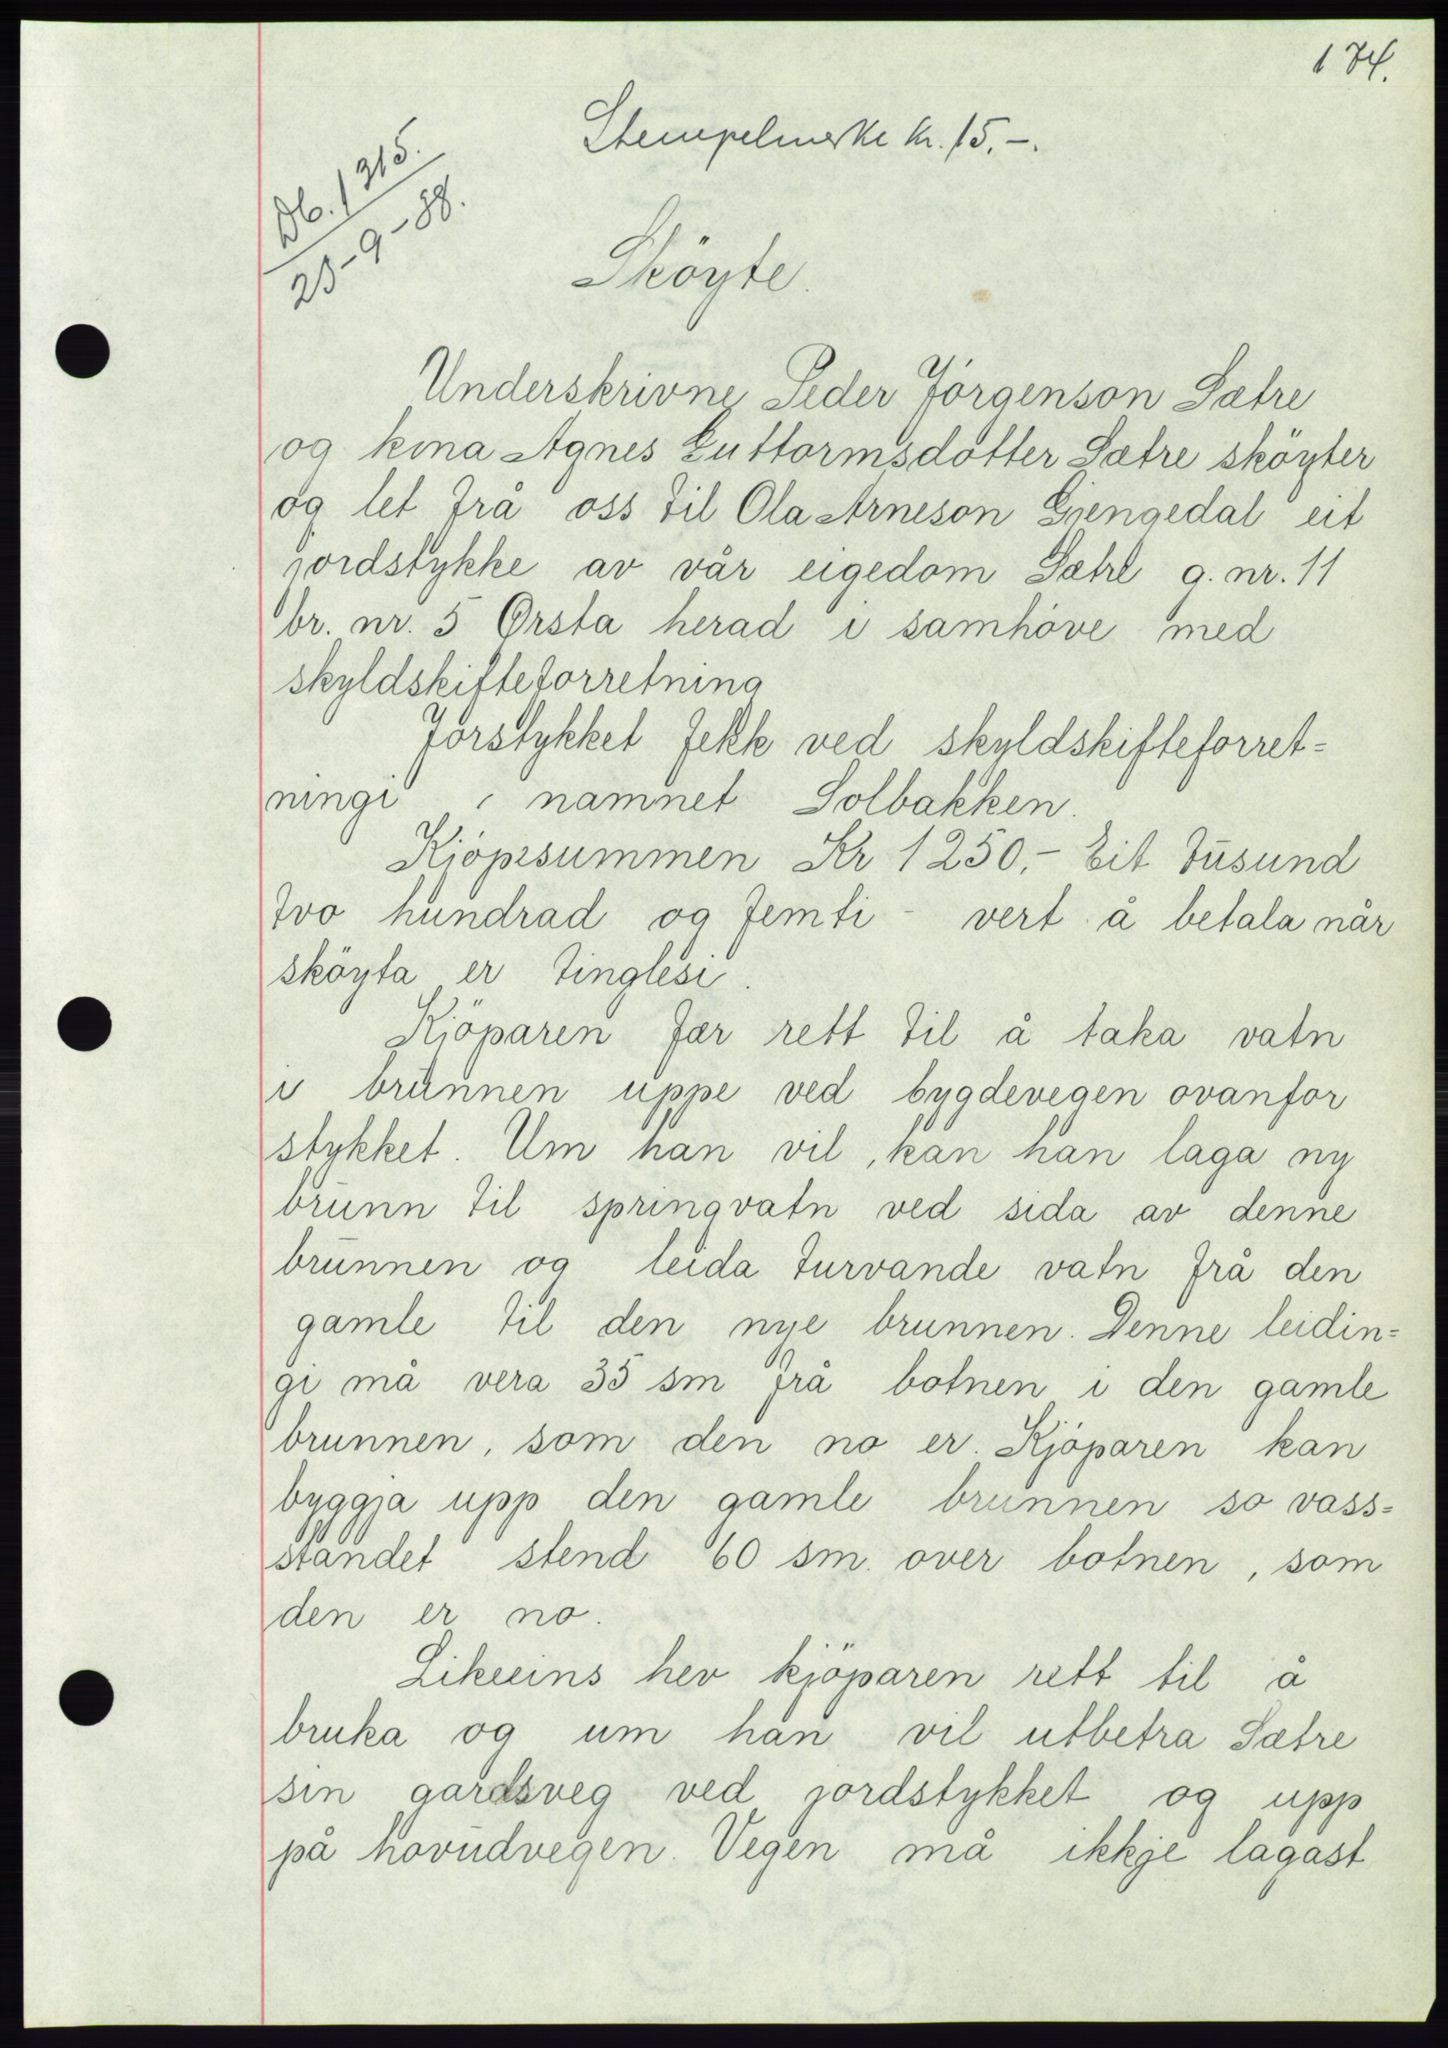 174.
Stempelmerke kr. 15.-.
Db. 1315.
23-9-38.
Sköyte.
Underskrivne Peder Jörgenson Sætre
og kona Agnes Guttormsdotter Sætre sköyter
og let frå oss til Ola Arneson Gjengedal eit
jordstykke av vår eigedom Sætre g. nr. 11
br. nr. 5 Ørsta herad i samhöve med
skyldskifteforretning
Jorstykket fekk ved skyldskifteforret=
ningi , namnet Solbakken.
Kjöpesummen Kr 1250,- Eit tusund
tvo hundrad og femti - vert å betala når
sköyta er tinglesi.
Kjöparen fær rett til å taka vatn
i brunnen uppe ved bygdevegen ovanfor
stykket. Um han vil, kan han laga ny
brunn til springvatn ved sida av denne
brunnen og leida turvande vatn frå den
gamle til den nye brunnen. Denne leidin=
gi må vera 35 sm frå botnen i den gamle
brunnen, som den no er. Kjöparen kan
byggja upp den gamle brunnen so vass=
standet stend 60 sm. over botnen, som
den er no.
Likeeins hev kjöparen rett til å
bruka og um han vil utbetra Sætre
sin gardsveg ved jordstykket og upp
på hovudvegen. Vegen må ikkje lagast